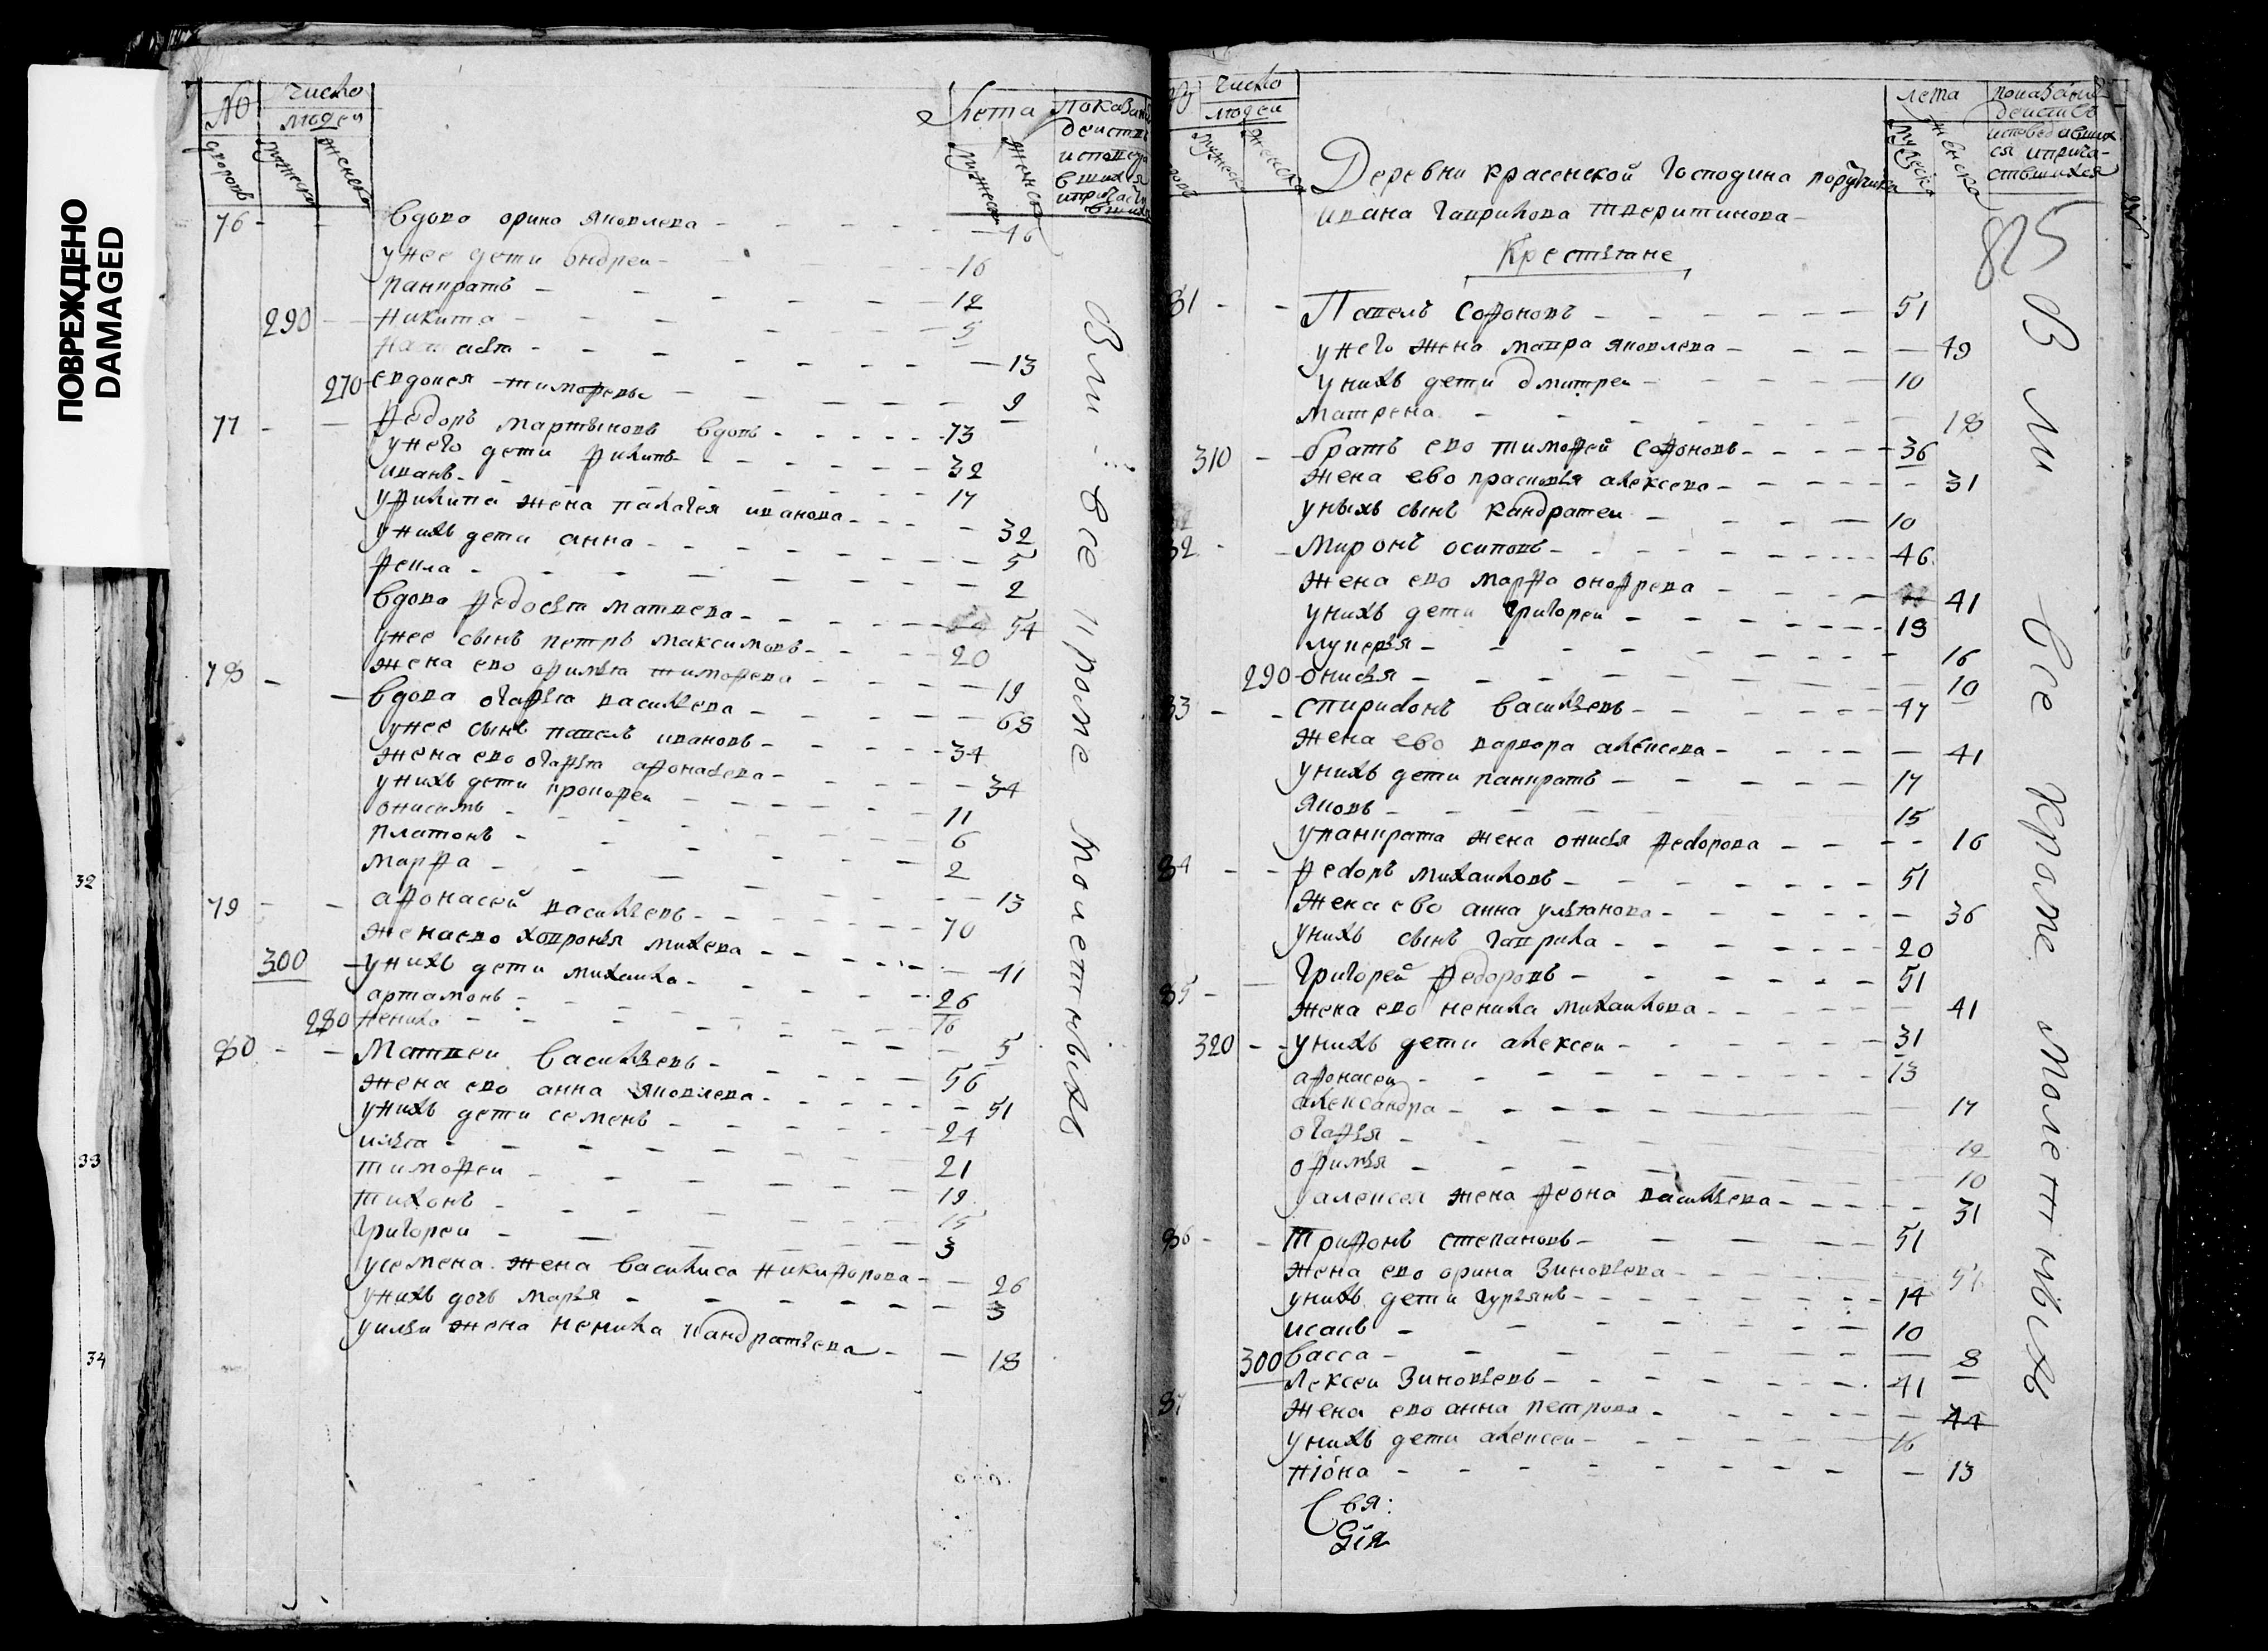 ПОВРЕЖДЕНО
DAMAGED
32
33
34
№ дворовъ
Число людей
мужеска женска
Лета
мужеска женска
76 - - вдова орина яковлева - 46
унее дети андреи - 16
панкратъ - 12
290 - никита - 5
13
270 евдокея тимофевы - 9
77 - - федоръ мартыновъ вдовъ - 73
унего дети филипъ - 32
иванъ - 17
уфилипа жена палагея иванова - 32
унихъ дети анна - 5
фекла - 2
вдова федосья матвева - 54
унее сынъ петръ максимовъ - 20
жена ево офимья тимофева - 19
78 - - вдова огафья васильева - 68
унее сынъ павелъ ивановъ - 34
жена ево огафья афонасева - 34
унихъ дети прокофеи - 11
онисимъ - 6
платонъ - 2
марфа - 13
79 - - афонасей васильевъ - 70
жена ево хавронья михева - 41
300 - унихъ дети михаила - 26
артамонъ - 16
280 ненила - 5
80 - - Матвеи васильевъ - 56
жена ево анна яковлева - 51
унихъ дети семенъ - 24
илья - 21
тимофеи - 19
тихонъ - 15
григореи - 3
усемена жена василиса никифорова - 26
унихъ дочь марья - 3
уильи жена ненила кандратьева - 18
Вли - все кроме молетнихъ
Число людеи
мужеска женска
лета
мужеска женска
показание деиствъ исповедавшихся ипричастившихся
825
Деревни красенской Господина порутчика
ивана гаврилова тверитинова
Крестьяне
81 - - Павелъ софоновъ - 51
унего жена мавра яковлева - 49
унихъ дети дмитреи - 10
матрена - 18
310 - - братъ ево тимофей софоновъ - 36
жена ево прасковья алексева - 31
унихъ сынъ кандратеи - 10
82 - - Миронъ осиповъ - 46
жена ево марфа онофрева - 41
унихъ дети григореи - 19
лукерья - 16
290 онисья - 10
83 - - спиридонъ васильевъ - 47
жена ево варвара алексева - 41
унихъ дети панкратъ - 17
яковъ - 15
упанкрата жена онисья федорова - 16
84 - - федоръ михаиловъ - 51
жена ево анна ульянова - 36
унихъ сынъ гаврила - 20
85 - - Григорей федоровъ - 51
жена ево ненила михаилова - 41
320 - - унихъ дети алексеи - 31
афонасеи - 13
александра - 17
огафья - 12
офимья - 10
уалексея жена феона васильева - 31
86 - - Трифонъ степановъ - 51
жена ево орина зиновьева
унихъ дети гурьянъ - 14
исаивъ - 10
300 васса - 8
87 Лексеи зиновьевъ - 41
жена ево анна петрова - 44
унихъ дети алексеи - 16
нiона - 13
Свя:
Вли все кроме молетнихъ